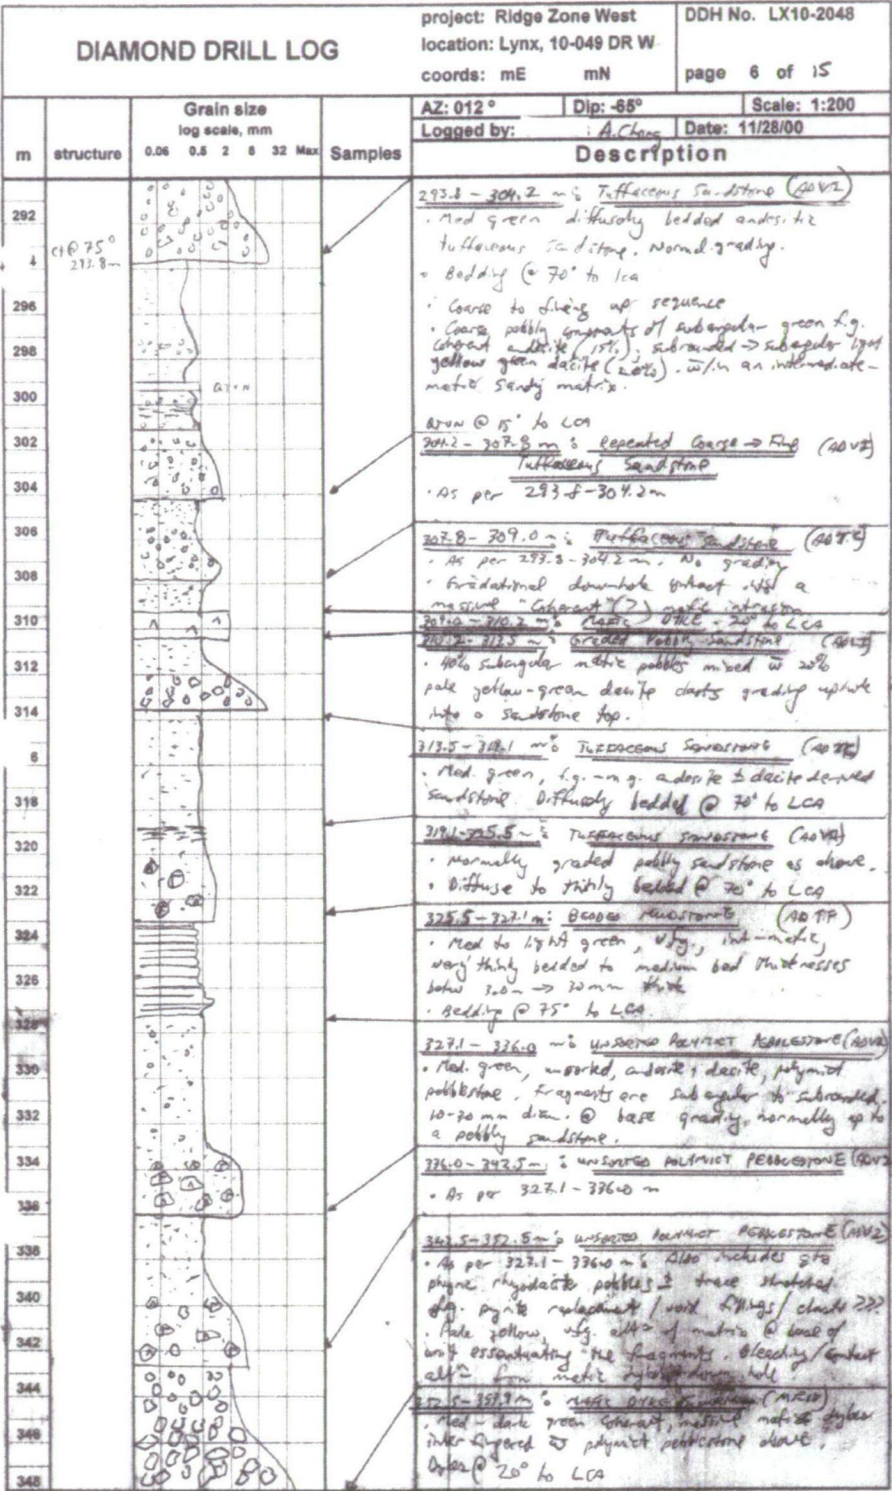 DIAMOND DRILL LOG
project: Ridge Zone West
location: Lynx, 10-049 DR W
coords: mE mN
DDH No. LX10-2048
page 6 of 15
AZ: 012 °
Dip: -65°
Scale: 1:200
Logged by: A.Chong
Date: 11/28/00
m
structure
Grain size
log scale, mm
0.06 0.5 2 8 32 Max
Samples
Description
292
4
296
298
300
302
304
306
308
310
312
314
6
318
320
322
324
326
328
330
332
334
336
338
340
342
344
346
348
ct @ 75°
293.8m
QTVN
293.8 - 304.2 m: Tuffaceous Sandstone (ADVZ)
• Med green diffusely bedded andesitic
tuffaceous sandstone. Normal grading.
• Bedding @ 70° to lca
• Coarse to fining up sequence
• Coarse pebbly components of subangular green f.g.
coherent andesite (15%). subrounded → subangular light
yellow green dacite (20%). w/in an intermediate-
mafic sandy matrix.
QTVN @ 15° to LCA
304.2 - 307.8 m: Repeated Coarse → Fine
Tuffaceous Sandstone
• As per 293.8-304.2m
307.8 - 309.0 m: Tuffaceous Sandstone
• As per 293.8-304.2m. No grading
• Gradational downhole contact a
massive "Coherent" (?) mafic intrusion
309.0 - 310.2 m: MAFIC DYKE - 20° to LCA
310.2 - 313.5 m: Graded Pebbly Sandstone
• 40% subangular mafic pebbles mixed w 20%
pale yellow-green dacite clasts grading uphole
into a sandstone top.
313.5 - 319.1 m: TUFFACEOUS SANDSTONE
• Med. green, f.g.-m.g. andesite ± dacite derived
sandstone. Diffusely bedded @ 70° to LCA
319.1-325.5 m: TUFFACEOUS SANDSTONE
• Normally graded pebbly sandstone as above.
• Diffuse to thinly bedded @ 70° to LCA
325.5 - 327.1 m: BEDDED MUDSTONE
• Med to light green, vfg, int-mafic,
very thinly bedded to medium bed thicknesses
→ 30mm thick
• Bedding @ 75° to LCA
327.1 - 336.0 m: UNSORTED POLYMICT PEBBLESTONE (ADVZ)
• Med. green, unsorted, andesite, dacite, polymict
pebblestone. Fragments are subangular to subrounded.
10-30 mm diam. @ base grading normally up to
a pebbly sandstone.
336.0 - 342.5 m: UNSORTED POLYMICT PEBBLESTONE (ADVZ
• As per 327.1 - 336.0 m
342.5-352.5 m: UNSORTED POLYMICT PEBBLESTONE (ADVZ)
• As per 327.1 - 336.0 m: Also includes qtz
phyric rhyodacite pebbles ± trace stretched
pyrite replacement / void fillings / clasts ???
• Pale yellow, vfg. alt of matrix @ base of
unit essentuating the fragments. Bleaching / contact
alt from mafic dykes down hole
352.5 - 357.9 m: MAFIC DYKE
• Med - dark green coherent, massive mafic dykes
inter fingered w polymict pebblestone above.
Dykes @ 20° to LCA